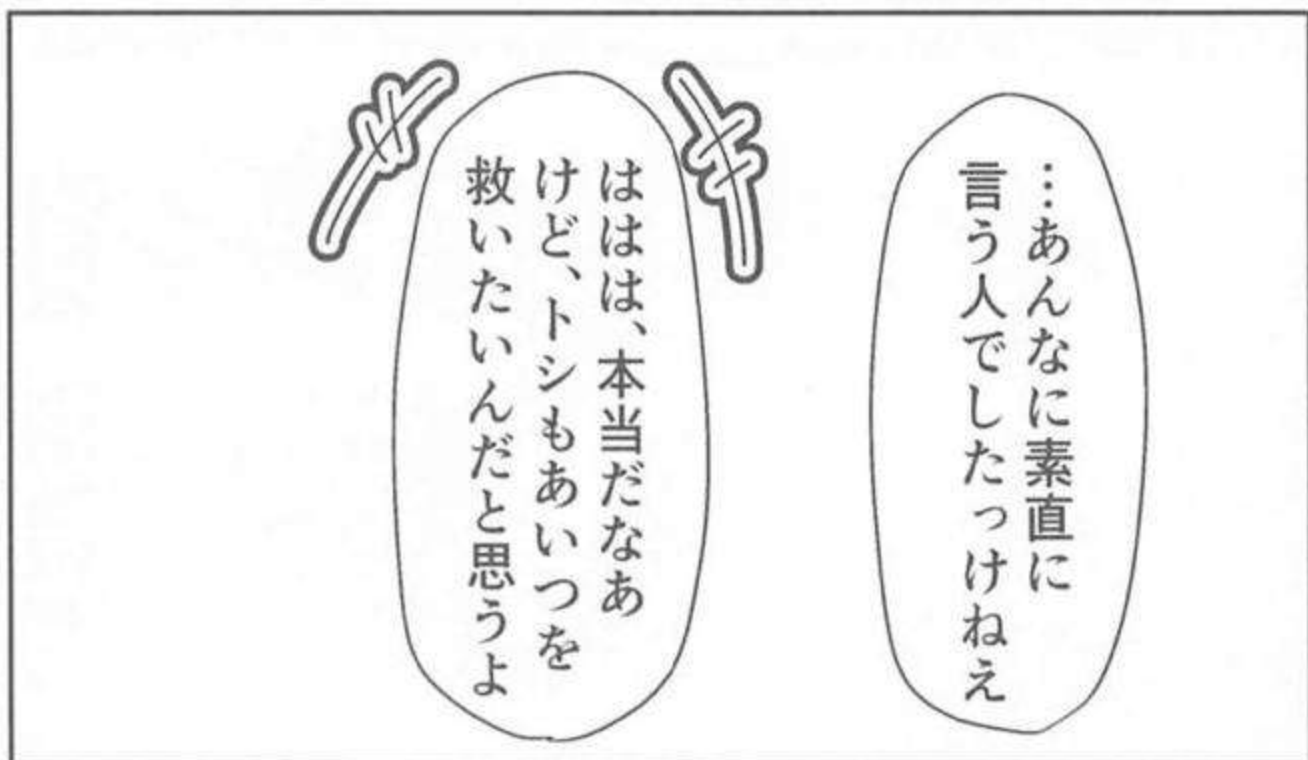 …あんなに素直に
言う人でしたっけねえ
ははは、本当だなあ
けど、トシもあいつを
救いたいんだと思うよ